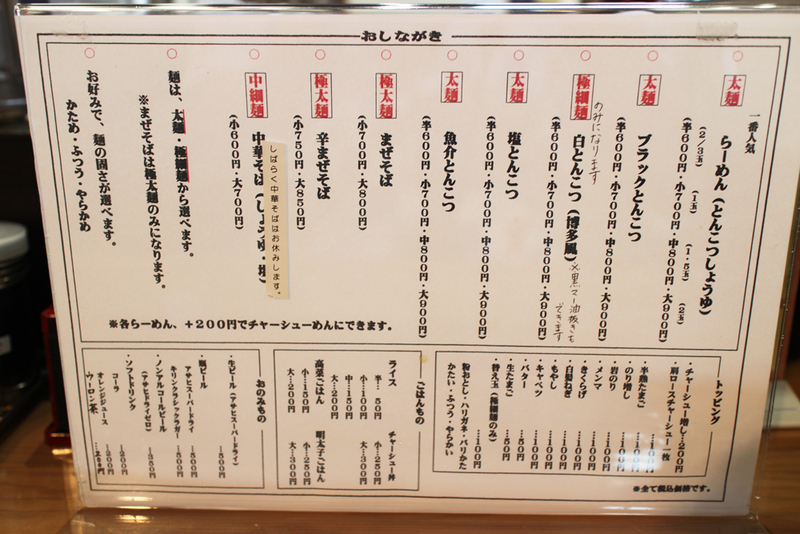 おしながき
一番人気
太麺
らーめん（とんこつしょうゆ）
（2/3玉）（1玉）（1.5玉）（2玉）
（半600円・小700円・中800円・大900円）
太麺
ブラックとんこつ
（半600円・小700円・中800円・大900円）
極細麺
のみになります
白とんこつ（博多風）
※黒マー油抜きもできます
（半600円・小700円・中800円・大900円）
太麺
塩とんこつ
（半600円・小700円・中800円・大900円）
太麺
魚介とんこつ
（半600円・小700円・中800円・大900円）
極太麺
まぜそば
（小700円・大800円）
極太麺
辛まぜそば
（小750円・大850円）
中細麺
中華そば（しょうゆ・塩）
しばらく中華そばはお休みします。
（小600円・大700円）
麺は、太麺・極細麺から選べます。
※まぜそばは極太麺のみになります。
お好みで、麺の固さが選べます。
かため・ふつう・やらかめ
※各らーめん、+200円でチャーシューめんにできます。
トッピング
・チャーシュー増し…200円
・肩ロースチャーシュー一枚
・半熟たまご …100円
・のり増し …100円
・岩のり …100円
・メンマ …100円
・きくらげ …100円
・白髪ねぎ …100円
・もやし …100円
・キャベツ …100円
・バター …100円
・生たまご …50円
・替え玉（極細麺のみ） …100円
粉おとし・ハリガネ・バリかた
かたい・ふつう・やらかい
ごはんもの
ライス
半… 50円
小…100円
中…150円
大…200円
チャーシュー丼
小…200円
大…300円
高菜ごはん
小…150円
大…200円
明太子ごはん
小…250円
大…300円
おのみもの
・生ビール（アサヒスーパードライ）
…500円
・瓶ビール
アサヒスーパードライ …500円
キリンクラシックラガー …500円
・ノンアルコールビール
（アサヒドライゼロ） …350円
・ソフトドリンク
コーラ …200円
オレンジジュース …200円
ウーロン茶 …200円
※全て税込価格です。